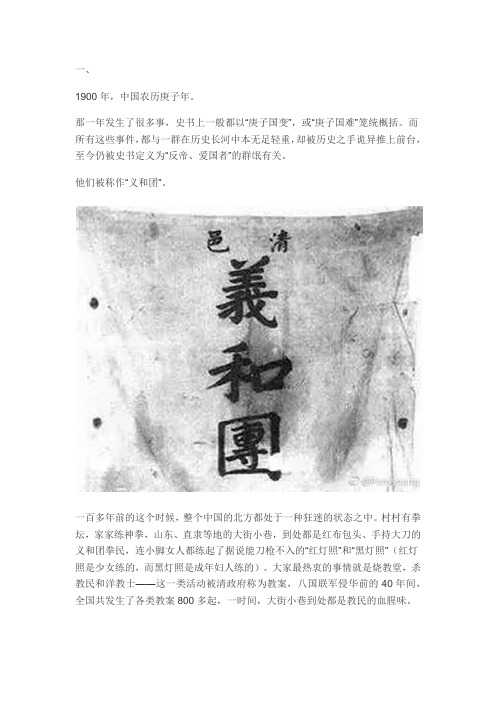 一、
1900 年，中国农历庚子年。
那一年发生了很多事，史书上一般都以“庚子国变”，或“庚子国难”笼统概括。而
所有这些事件，都与一群在历史长河中本无足轻重，却被历史之手诡异推上前台，
至今仍被史书定义为“反帝、爱国者”的群氓有关。
他们被称作“义和团”。
邑 清
義
和
團
一百多年前的这个时候，整个中国的北方都处于一种狂迷的状态之中。村村有拳
坛，家家练神拳，山东、直隶等地的大街小巷，到处都是红布包头、手持大刀的
义和团拳民，连小脚女人都练起了据说能刀枪不入的“红灯照”和“黑灯照”（红灯
照是少女练的，而黑灯照是成年妇人练的）。大家最热衷的事情就是烧教堂，杀
教民和洋教士——这一类活动被清政府称为教案，八国联军侵华前的 40 年间，
全国共发生了各类教案 800 多起，一时间，大街小巷到处都是教民的血腥味。